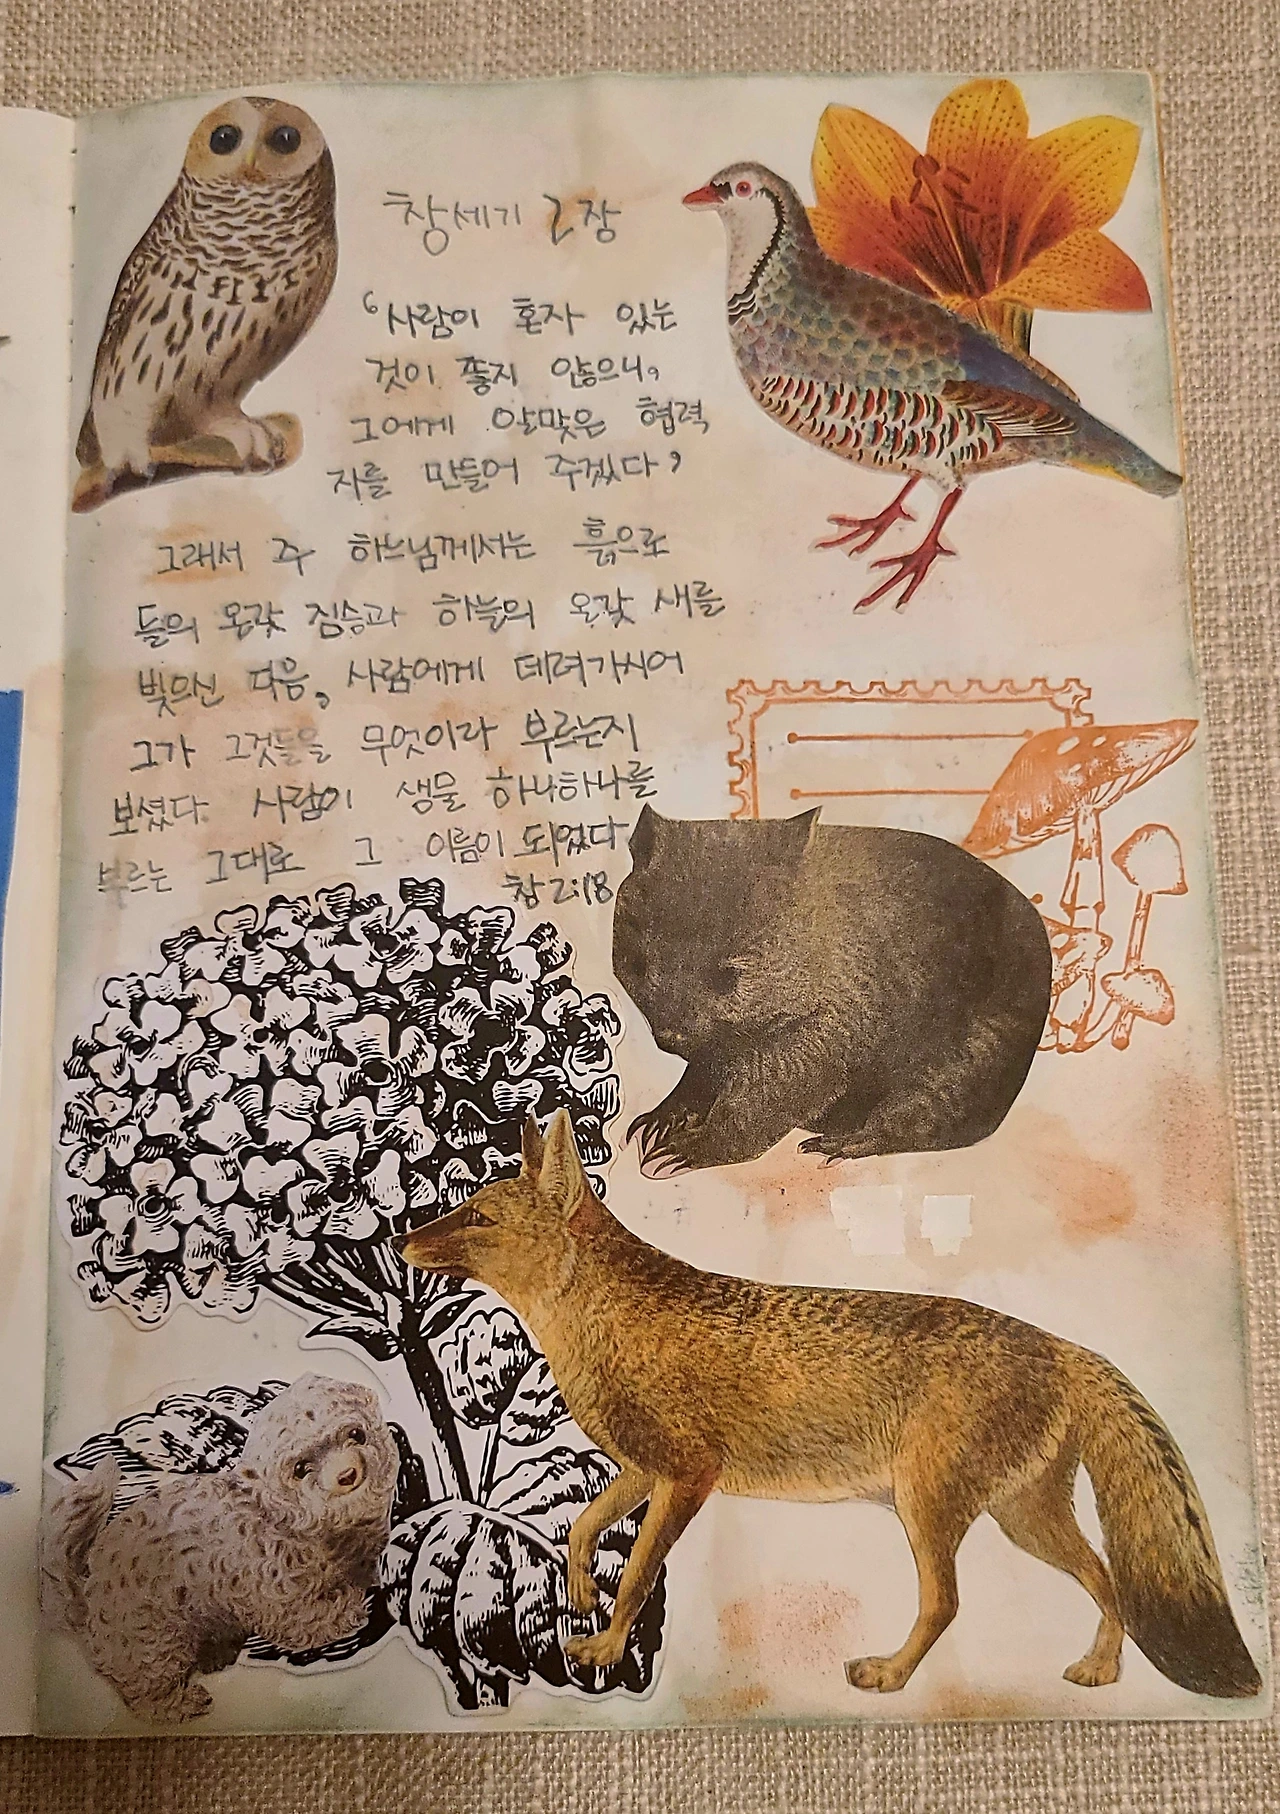 창세기 2장
‘사람이 혼자 있는
것이 좋지 않으니,
그에게 알맞은 협력
자를 만들어 주겠다’
그래서 주 하느님께서는 흙으로
들의 온갖 짐승과 하늘의 온갖 새를
빚으신 다음, 사람에게 데려가시어
그가 그것들을 무엇이라 부르는지
보셨다. 사람이 생물 하나하나를
부르는 그대로 그 이름이 되었다
창 2:18